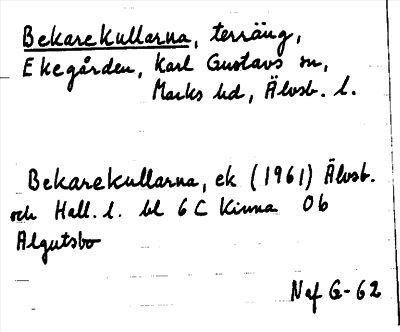 Bekarekullarna, terräng,
Ekegården, Karl Gustavs sn,
Marks hd, Älvsb. l.
Bekarekullarna, ek (1961) Älvsb.
och Hall. l. bl 6 C Kinna Ob
Algutsbo
Naf G-62